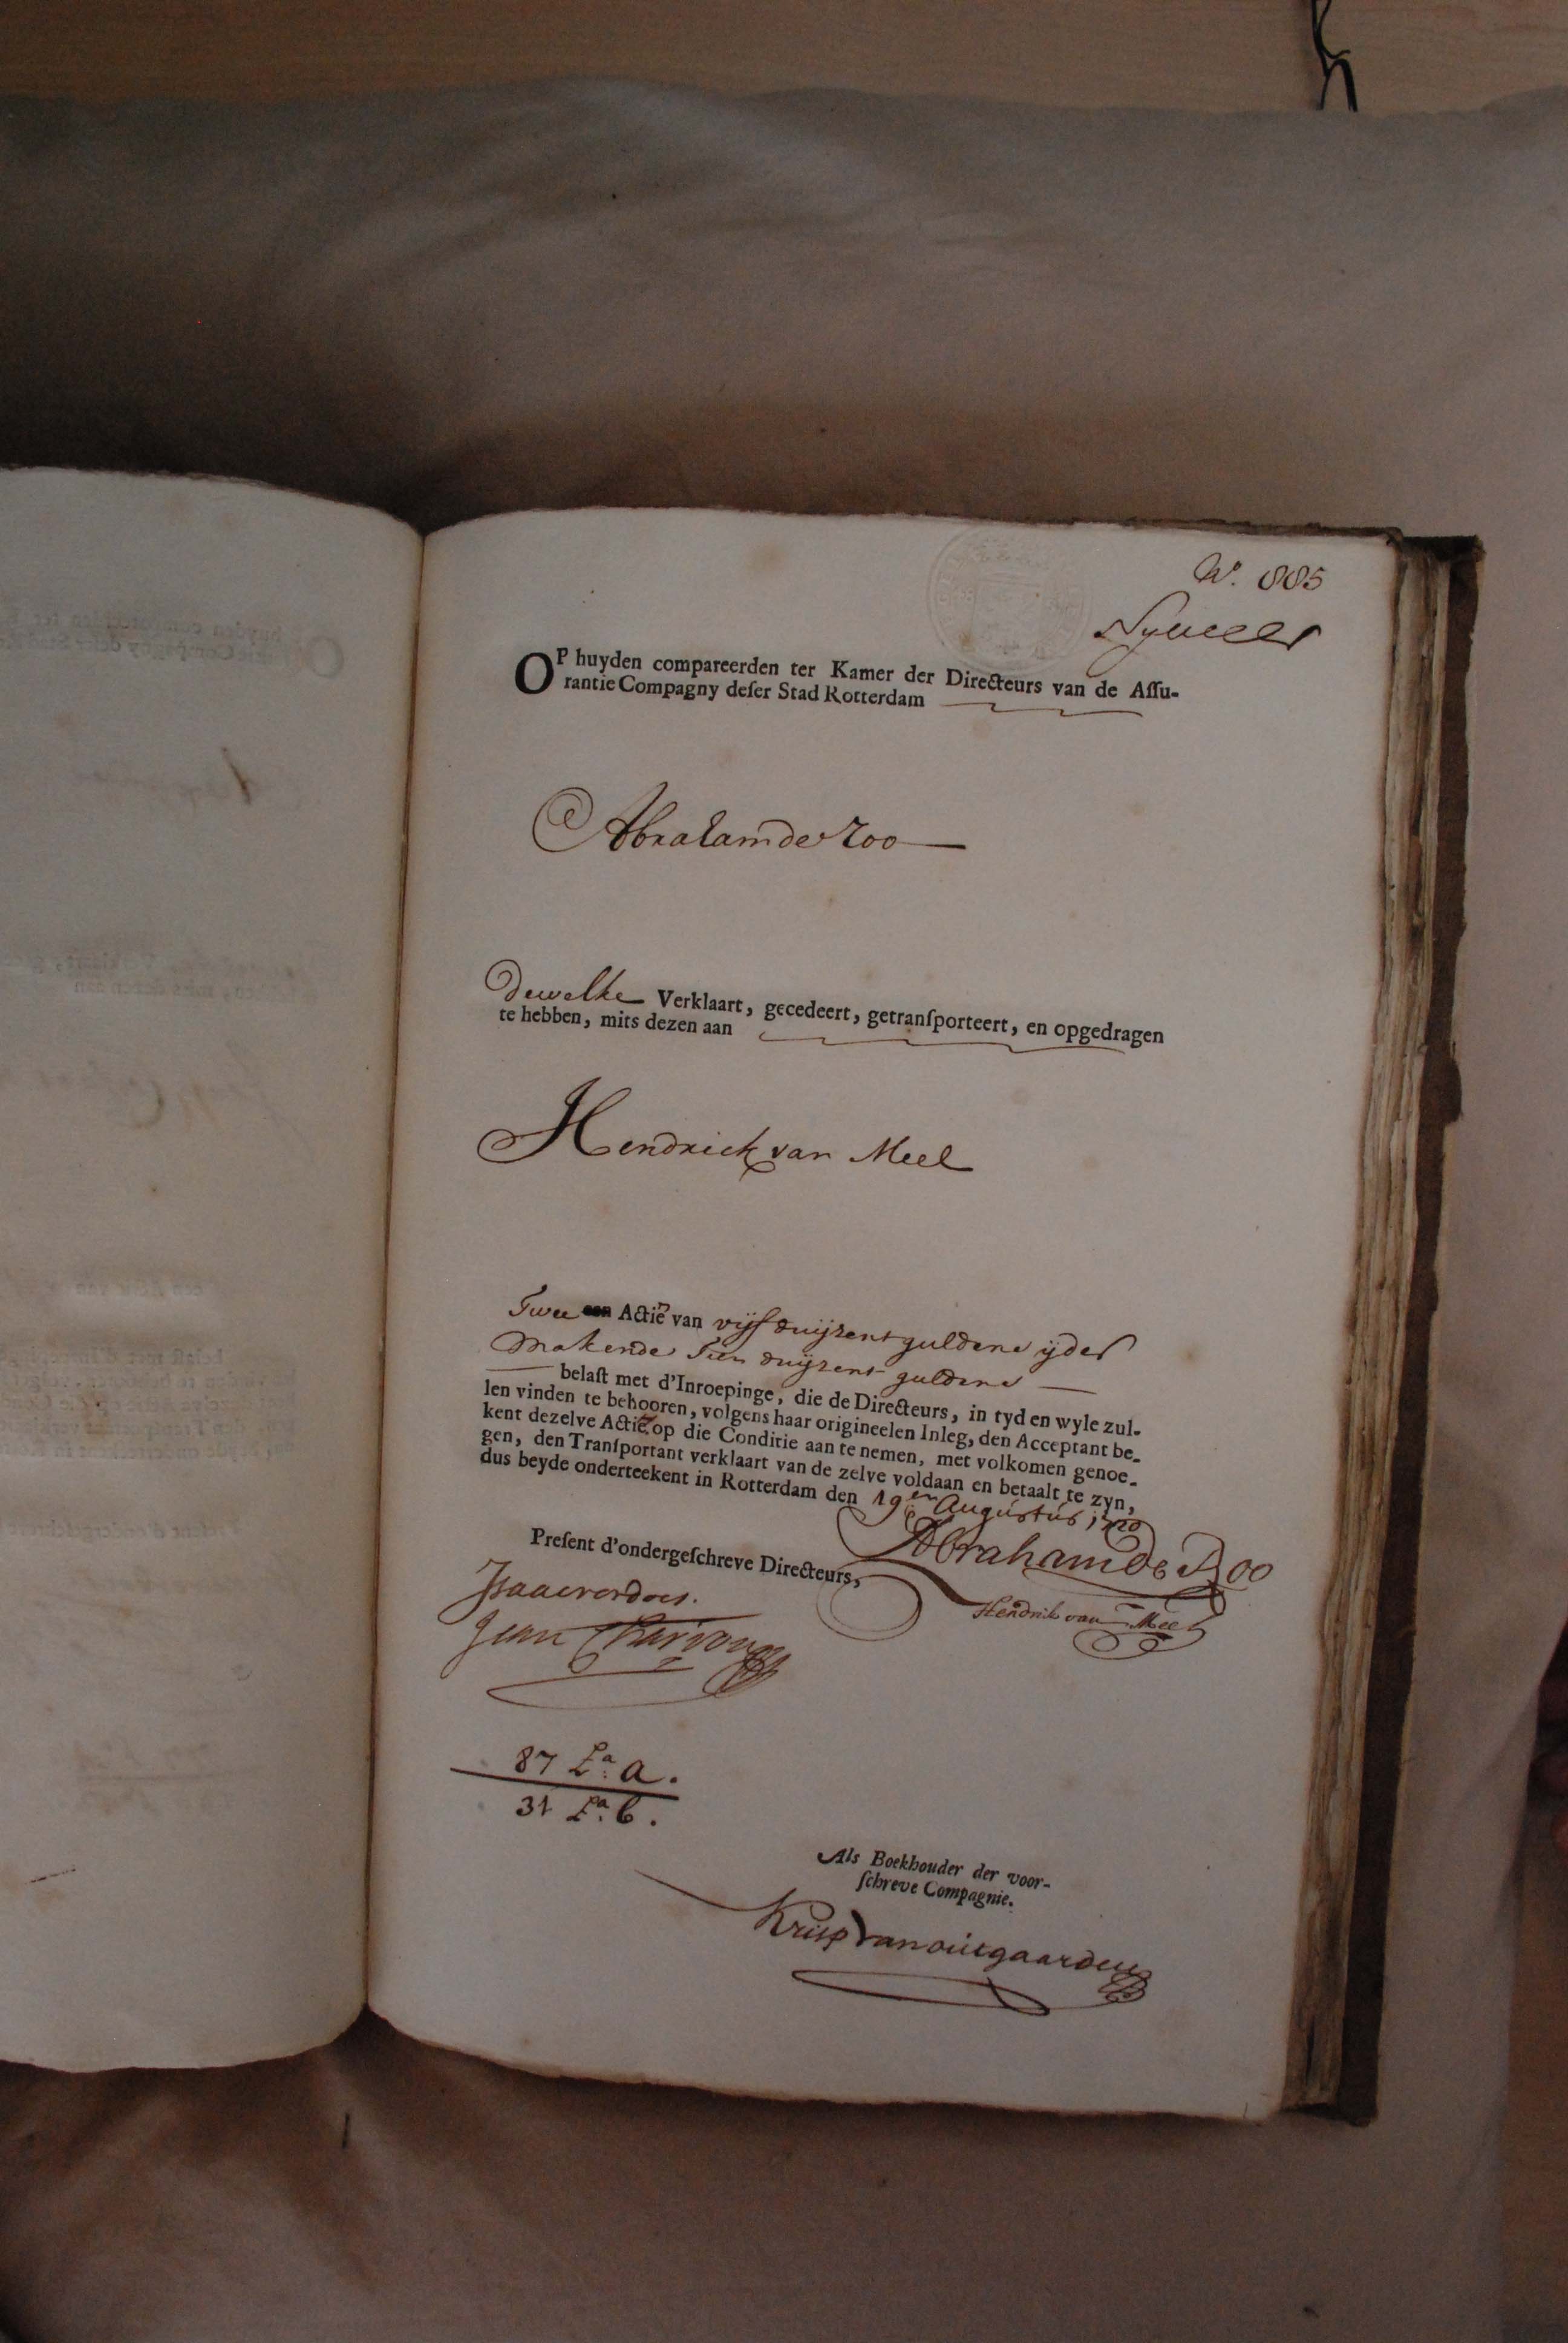 No. 885
OP huyden compareerden ter Kamer der Directeurs van de Aſſu-
rantie Compagny deſer Stad Rotterdam
Abraham de Roo
Dewelke Verklaart, gecedeert, getranſporteert, en opgedragen
te hebben, mits dezen aan
Hendrick van Meel
Twee een Actiën van vijf duijzent guldens ijder
Makende Tien duijzent guldens
belaſt met d'Inroepinge, die de Directeurs, in tyd en wyle zul-
len vinden te behooren, volgens haar origineelen Inleg, den Acceptant be-
kent dezelve Actië op die Conditie aan te nemen, met volkomen genoe-
gen, den Tranſportant verklaart van de zelve voldaan en betaalt te zyn,
dus beyde onderteekent in Rotterdam den 19en Augustus 1720
Preſent d'ondergeſchreve Directeurs,
Abraham de Roo
Hendrik van Meel
Jean
87 La. a.
31 La. b.
Als Boekhouder der voor-
ſchreve Compagnie.